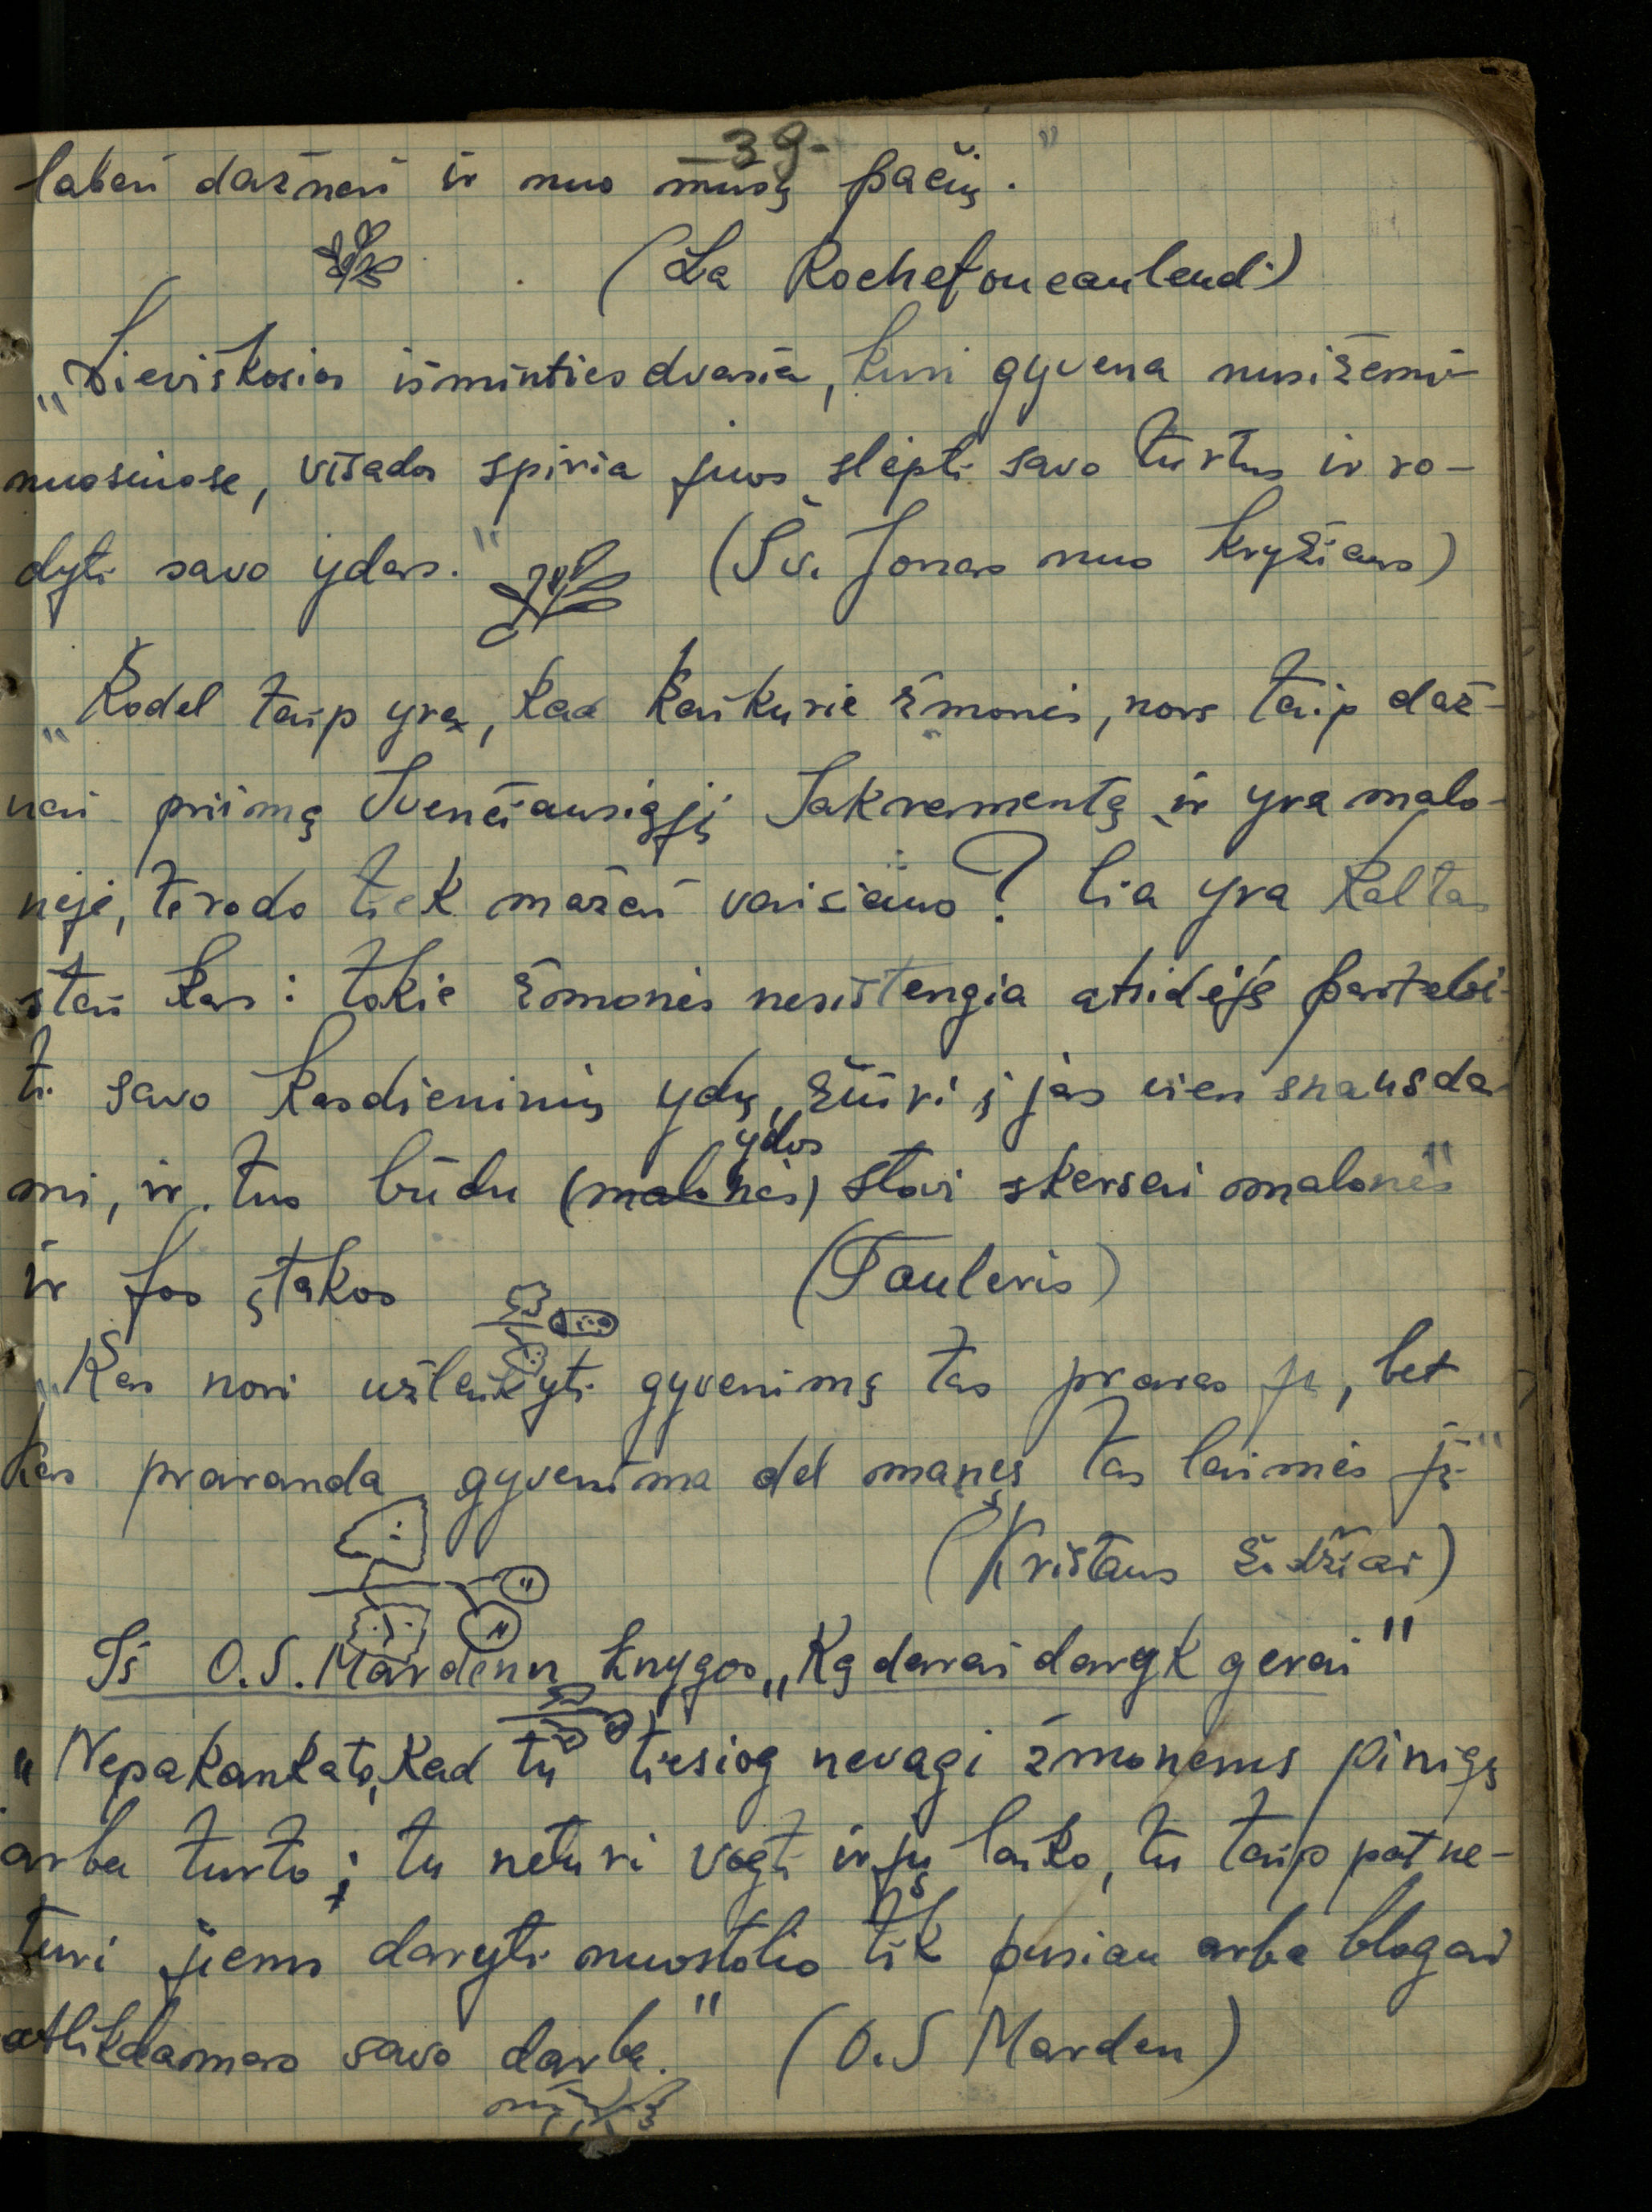 -39-
labai dažnai ir nuo mūsų pačių."
(La Rochefoucauland)
„Dieviškosios išminties dvasia, kuri gyvena nusižemi-
nuosiuose, visados spiria juos slėpti savo turtus ir ro-
dyti savo ydas." (Šv. Jonas nuo Kryžiaus)
„Kodel taip yra, kad kaikurie žmonės, nors taip daž-
nai priima Švenčiausiąjį Sakramentą ir yra malo-
nėje, terodo tiek mažai vaisiaus? Čia yra kaltas
štai kas: tokie žmonės nesistengia atidėję pastebi-
ti savo kasdieninių ydų, žiūri į jas vien snausda-
mi, ir tuo būdu (malonės) ydos stovi skersai malonės"
ir jos įtakos (Tauleris)
„Kas nori užlaikyti gyvenimą tas praras jį, bet
kas praranda gyvenima del manęs tas laimės jį"
(Kristaus žodžiai)
Iš O.S. Mardenn knygos „Ką darai daryk gerai"
„Nepakankato, kad tu tiesiog nevagi žmonems pinigų
arba turto; tu neturi vogti ir jų laiko, tu taip pat ne-
turi jiems daryti nuostolio tik pusiau arba blogai
atlikdamas savo darba." (O.S Marden)